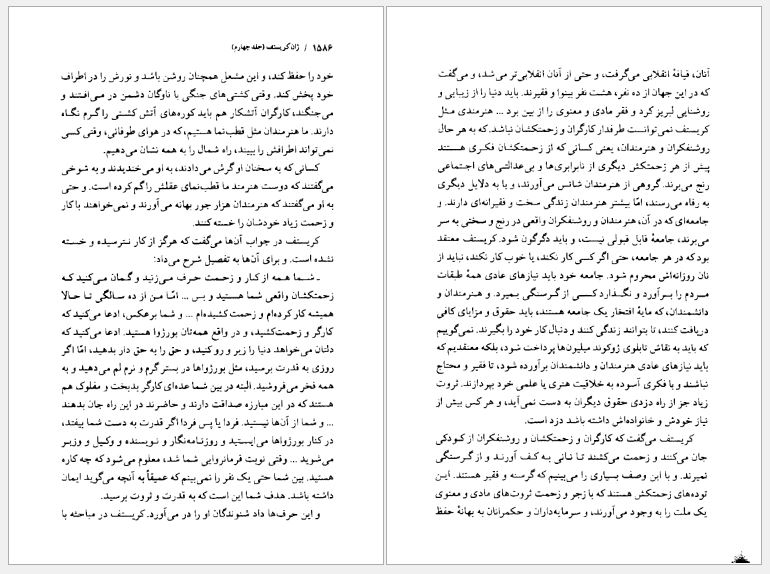 آنان، قیافهٔ انقلابی می‌گرفت، و حتی از آنان انقلابی‌تر می‌شد، و می‌گفت
که در این جهان از ده نفر، هشت نفر بینوا و فقیرند. باید دنیا را از زیبایی و
روشنایی لبریز کرد و فقر مادی و معنوی را از بین برد ... هنرمندی مثل
کریستف نمی‌توانست طرفدار کارگران و زحمتکشان نباشد. که به هر حال
روشنفکران و هنرمندان، یعنی کسانی که از زحمتکشان فکری هستند
پیش از هر زحمتکش دیگری از نابرابریها و بی‌عدالتی‌های اجتماعی
رنج می‌برند. گروهی از هنرمندان شانس می‌آورند، و یا به دلایل دیگری
به رفاه می‌رسند، امّا بیشتر هنرمندان زندگی سخت و فقیرانه‌ای دارند. و
جامعه‌ای که در آن، هنرمندان و روشنفکران واقعی در رنج و سختی به سر
می‌برند، جامعهٔ قابل قبولی نیست، و باید دگرگون شود. کریستف معتقد
بود که در هر جامعه، حتی اگر کسی کار نکند، یا خوب کار نکند، نباید از
نان روزانه‌اش محروم شود. جامعه خود باید نیازهای عادی همهٔ طبقات
مردم را برآورد و نگذارد کسی از گرسنگی بمیرد. و هنرمندان و
دانشمندان، که مایهٔ افتخار یک جامعه هستند، باید حقوق و مزایای کافی
دریافت کنند، تا بتوانند زندگی کنند و دنبال کار خود را بگیرند. نمی‌گوییم
که باید به نقاش تابلوی ژوکوند میلیون‌ها پرداخت شود، بلکه معتقدیم که
باید نیازهای عادی هنرمندان و دانشمندان برآورده شود، تا فقیر و محتاج
نباشند و با فکری آسوده به خلاقیت هنری یا علمی خود بپردازند. ثروت
زیاد جز از راه دزدی حقوق دیگران به دست نمی‌آید، و هر کس بیش از
نیاز خودش و خانواده‌اش داشته باشد دزد است.
کریستف می‌گفت که کارگران و زحمتکشان و روشنفکران از کودکی
جان می‌کنند و زحمت می‌کشند تا نانی به کف آورند و از گرسنگی
نمیرند. و با این وصف بسیاری را می‌بینیم که گرسنه و فقیر هستند. این
توده‌های زحمتکش هستند که با زجر و زحمت ثروت‌های مادی و معنوی
یک ملت را به وجود می‌آورند، و سرمایه‌داران و حکمرانان به بهانهٔ حفظ
۱۵۸۶ / ژان کریستف (جلد چهارم)
خود را حفظ کند، و این مشعل همچنان روشن باشد و نورش را در اطراف
خود پخش کند. وقتی کشتی‌های جنگی با ناوگان دشمن در می‌افتند و
می‌جنگند، کارگران آتشکار هم باید کوره‌های آتش کشتی را گرم نگاه
دارند. ما هنرمندان مثل قطب‌نما هستیم، که در هوای طوفانی، وقتی کسی
نمی‌تواند اطرافش را ببیند، راه شمال را به همه نشان می‌دهیم.
کسانی که به سخنان او گوش می‌دادند، به او می‌خندیدند و به شوخی
می‌گفتند که دوست هنرمند ما قطب‌نمای عقلش را گم کرده است. و حتی
به او می‌گفتند که هنرمندان هزار جور بهانه می‌آورند و نمی‌خواهند با کار
و زحمت زیاد خودشان را خسته کنند.
کریستف در جواب آن‌ها می‌گفت که هرگز از کار نترسیده و خسته
نشده است. و برای آن‌ها به تفصیل شرح می‌داد:
ـ شما همه از کار و زحمت حرف می‌زنید و گمان می‌کنید که
زحمتکشان واقعی شما هستید و بس ... امّا من از ده سالگی تا حالا
همیشه کار کرده‌ام و زحمت کشیده‌ام ... و شما برعکس، ادعا می‌کنید که
کارگر و زحمت‌کشید، و در واقع همه‌تان بورژوا هستید. ادعا می‌کنید که
دلتان می‌خواهد دنیا را زیر و رو کنید، و حق را به حق دار بدهید، امّا اگر
روزی به قدرت برسید، مثل بورژواها در بستر گرم و نرم لم می‌دهید و به
همه فخر می‌فروشید. البته در بین شما عده‌ای کارگر بدبخت و مفلوک هم
هستند که در این مبارزه صداقت دارند و حاضرند در این راه جان بدهند
... و شما از آن‌ها نیستید. فردا یا پس فردا اگر قدرت به دست شما بیفتد،
در کنار بورژواها می‌ایستید و روزنامه‌نگار و نویسنده و وکیل و وزیر
می‌شوید ... وقتی نوبت فرمانروایی شما شد، معلوم می‌شود که چه کاره
هستید. بین شما حتی یک نفر را نمی‌بینم که عمیقاً به آنچه می‌گوید ایمان
داشته باشد. هدف شما این است که به قدرت و ثروت برسید.
و این حرف‌ها داد شنوندگان او را در می‌آورد. کریستف در مباحثه با